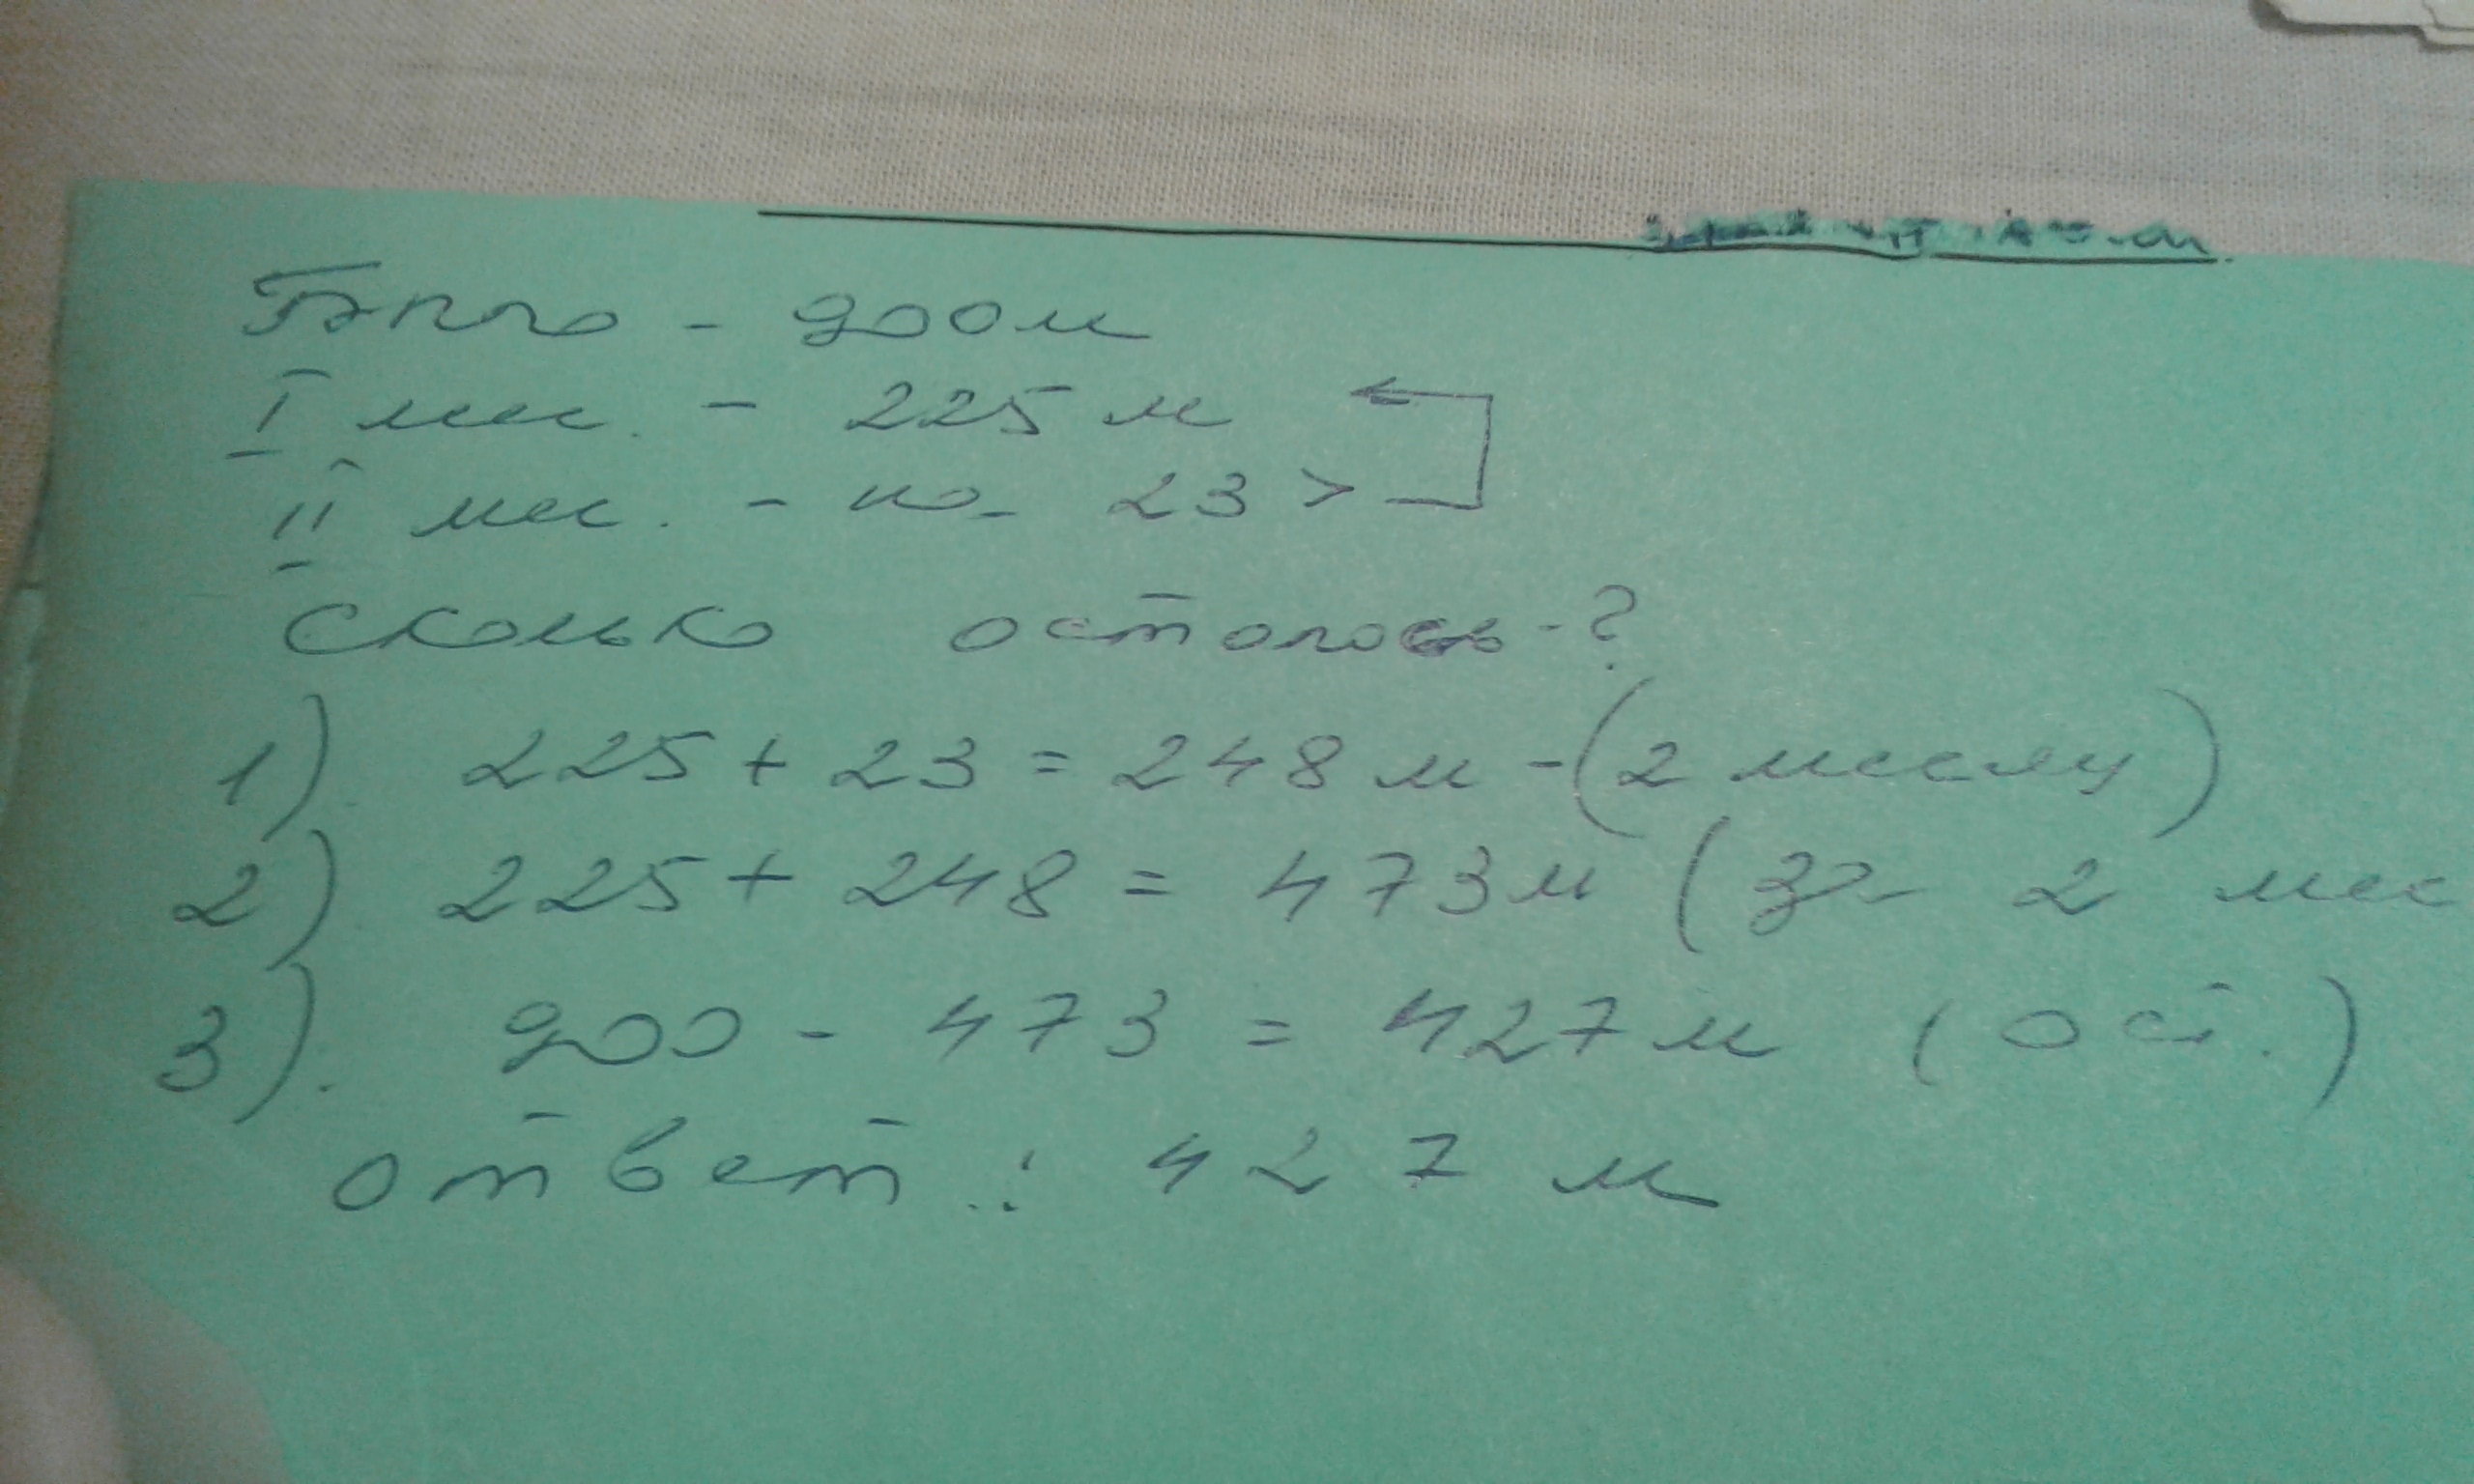 Было - 900 м
I мес. - 225 м
II мес. - на 23 >
Сколько осталось - ?
1) 225 + 23 = 248 м - (2 месяц)
2) 225 + 248 = 473 м (за 2 мес
3). 900 - 473 = 427 м (ост.)
ответ: 427 м